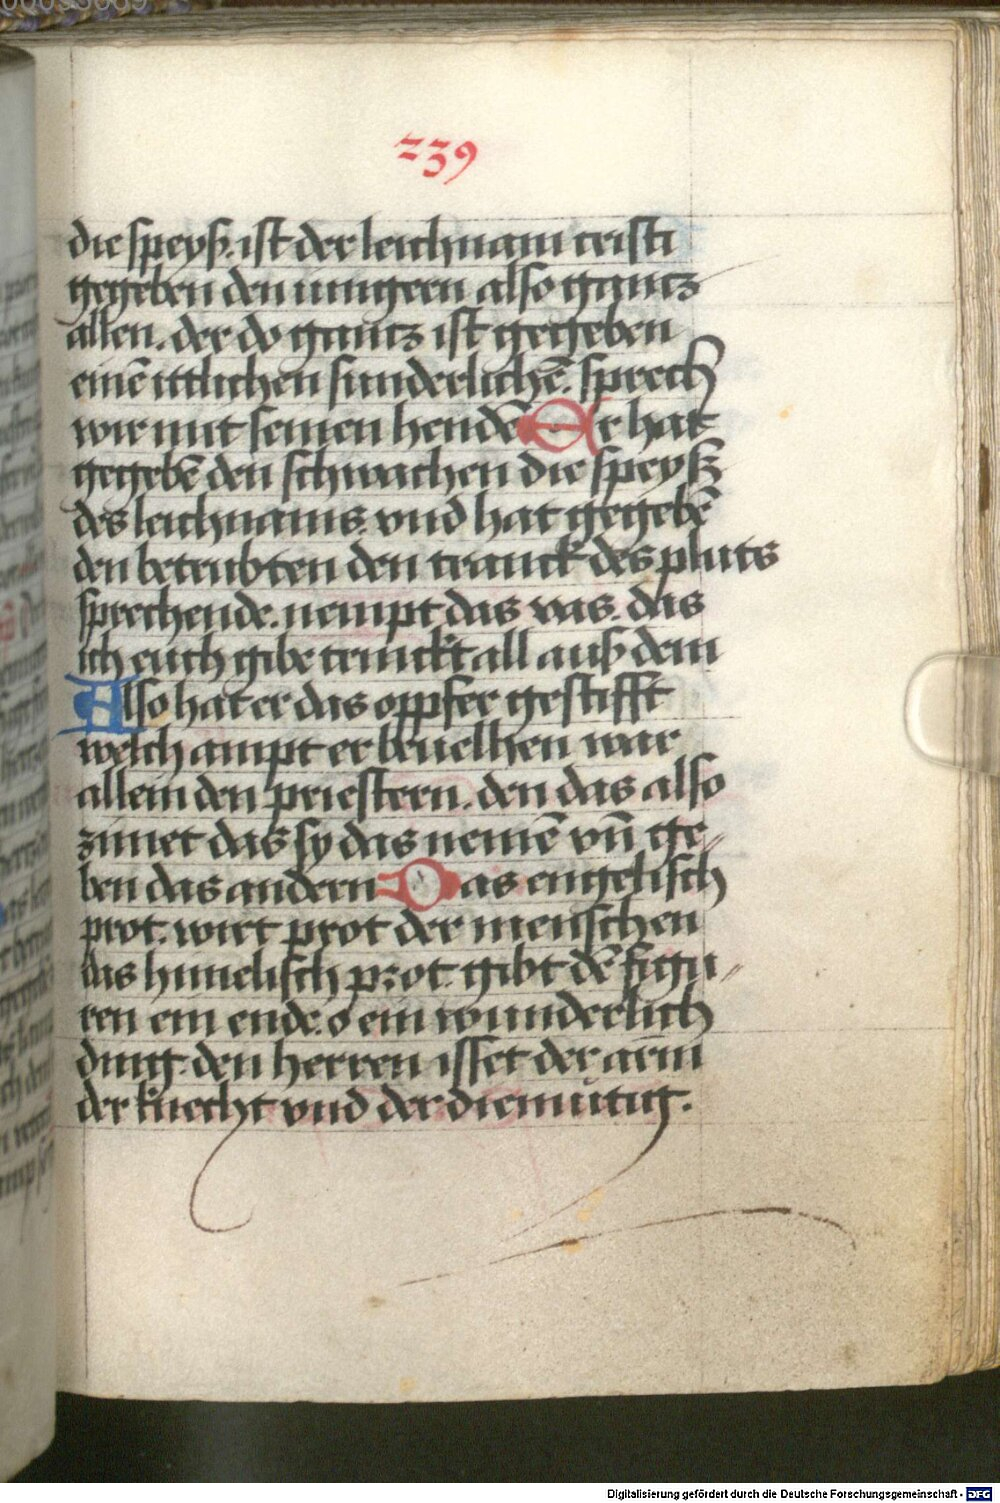 00093689
239
die speyß. ist der leichnam cristi
gegeben den iungern also gantz
allen. der do gantz ist gegeben
einē ittlichen sunderlichē. sprech
wir mit seinen hendē Er hat
gegebē den schwachen die speyß
des leichnams. vnd hat gegebē
den betrubten den tranck des pluts
sprechende. nempt das vas. das
ich euch gibe trinckt all auß dem
Also hat er das oppfer gestifft
welch ampt er beuelhen war
allein den priestern. den das also
zimet das sy das nemē vn̄ ge⸗
ben das andern Das engelisch
prot. wirt prot der menschen
das himelisch prot. gibt dē figu⸗
ren ein ende. o ein wunderlich
ding. den herren isset der arm
der knecht vnd der diemütig.
Digitalisierung gefördert durch die Deutsche Forschungsgemeinschaft - DFG